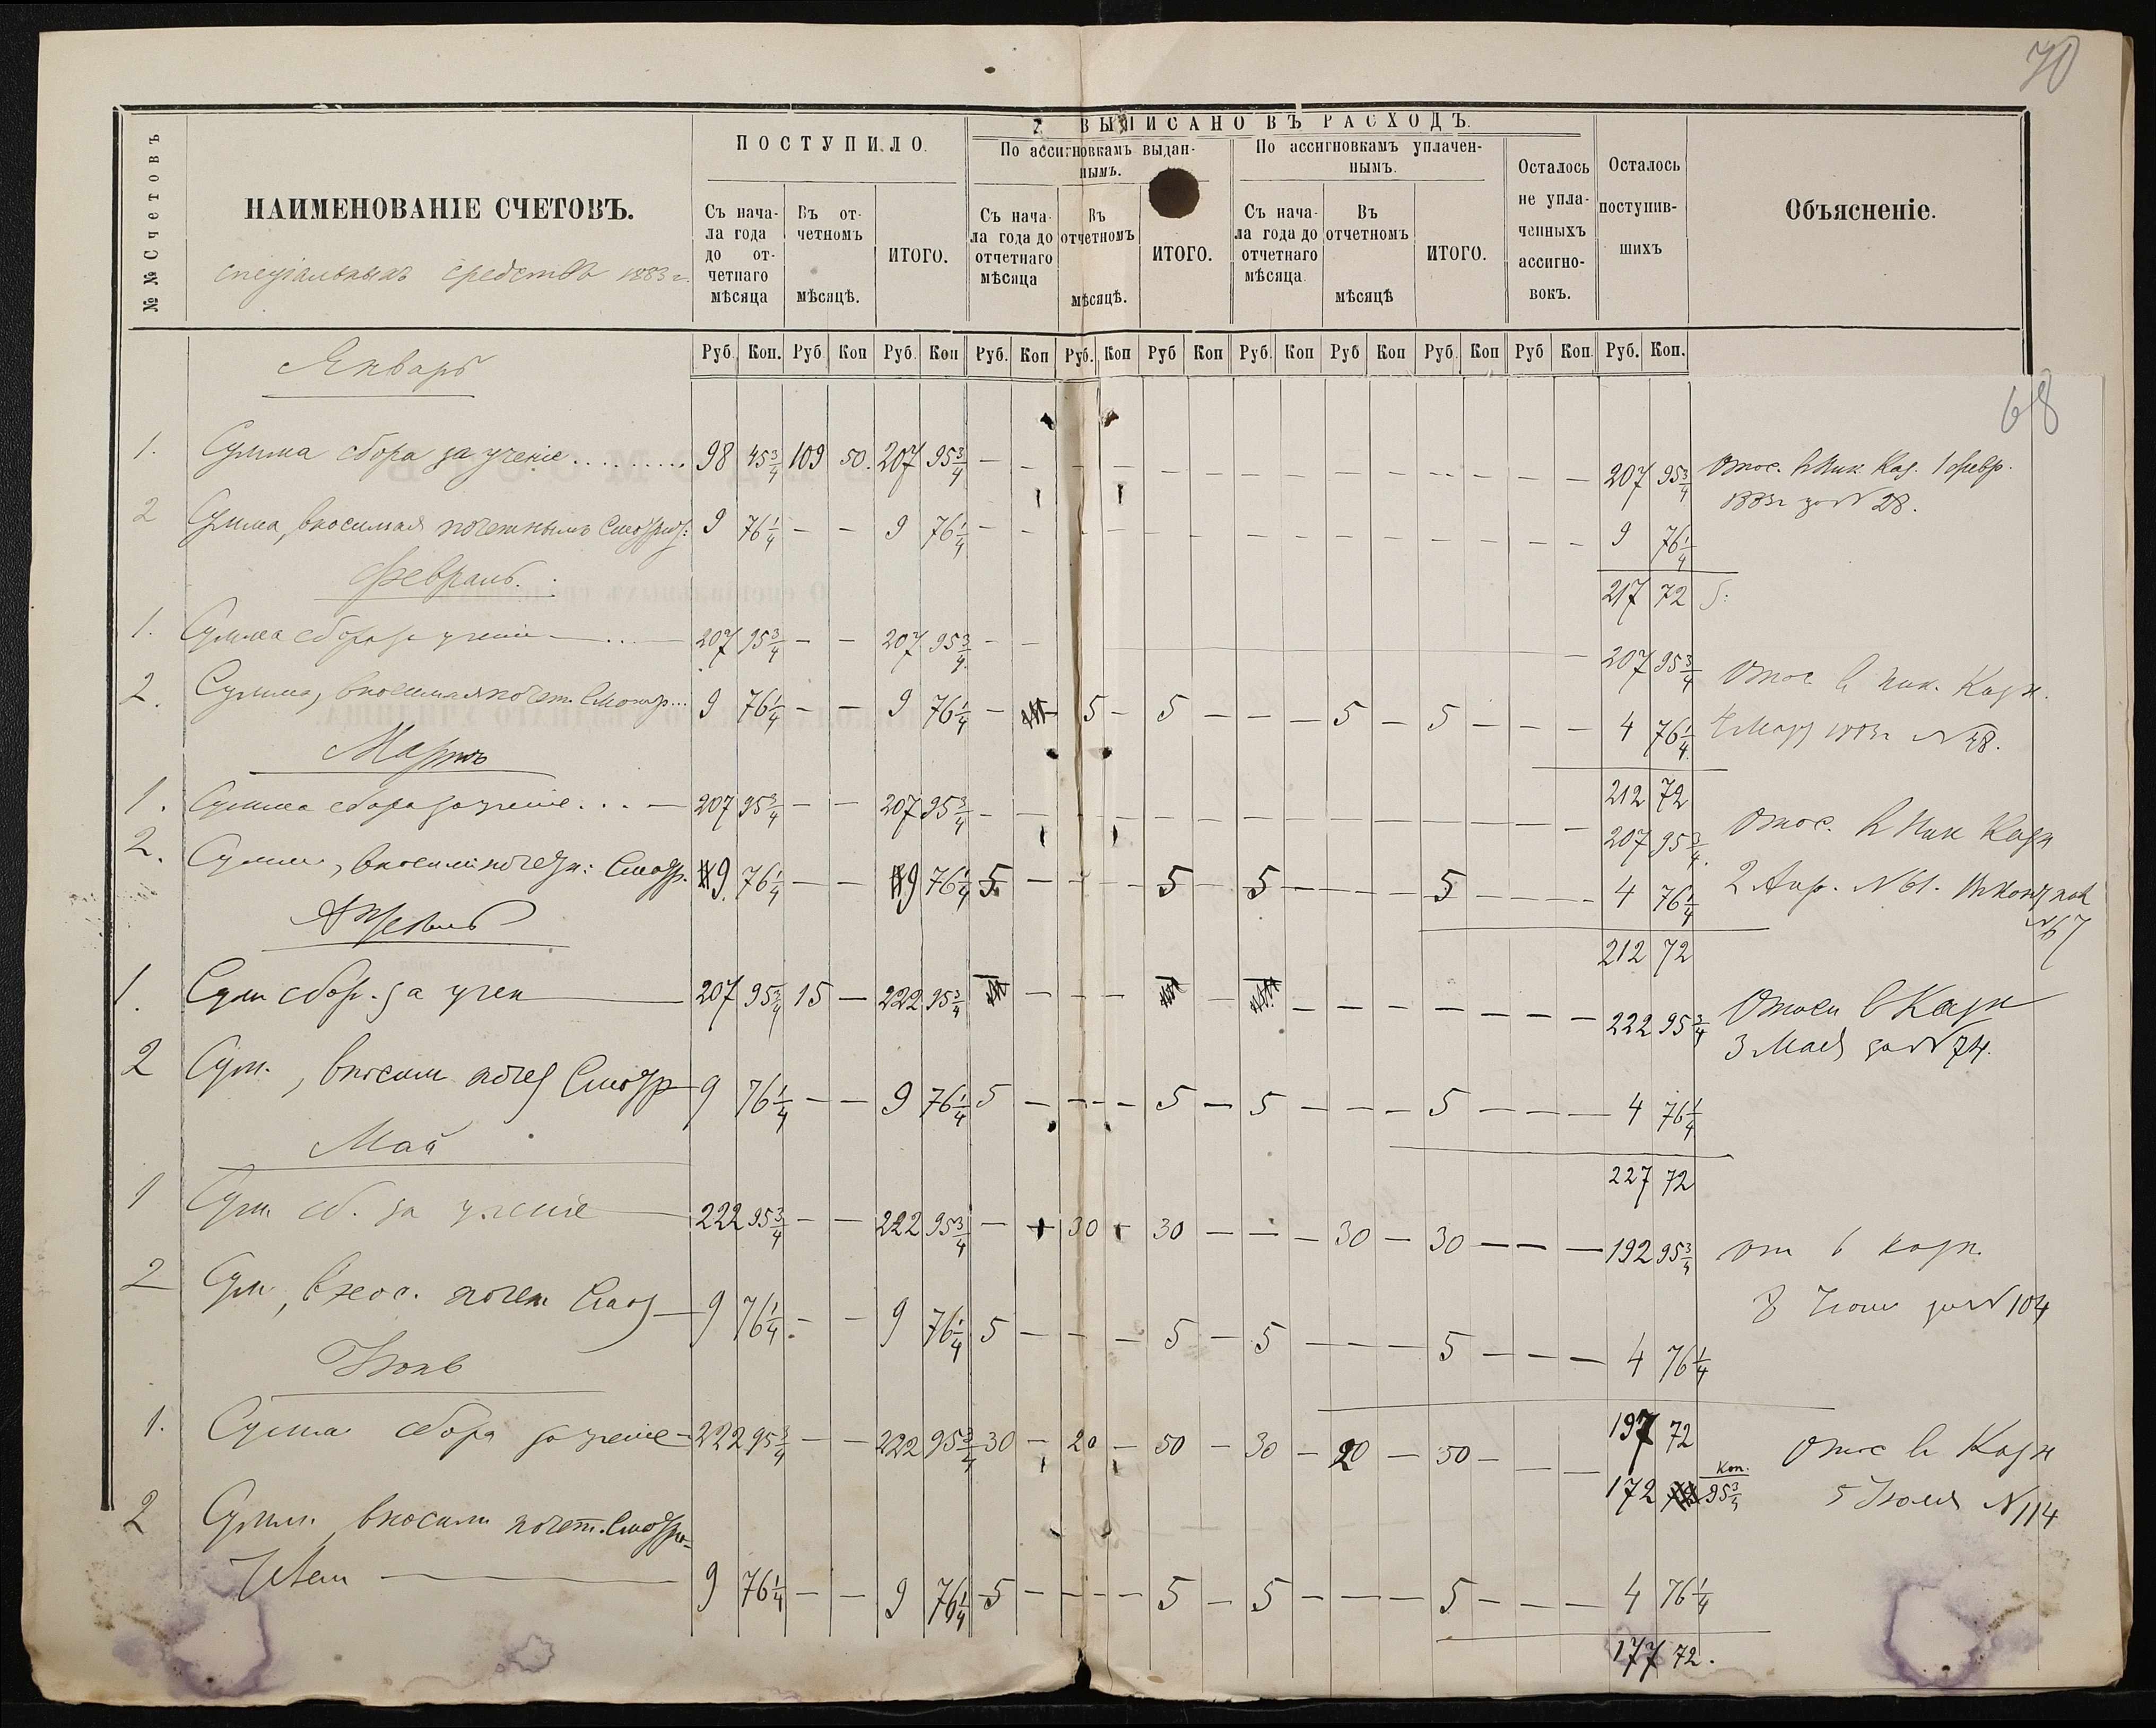 70
№№ Счетовъ
НАИМЕНОВАНІЕ СЧЕТОВЪ.
спеціальныхъ средствъ 1883 г.
ПОСТУПИЛО.
Съ нача-
ла года
до от-
четнаго
мѣсяца
Въ от-
четномъ
мѣсяцѣ.
ИТОГО.
2. ВЫПИСАНО ВЪ РАСХОДЪ.
По ассигновкамъ выдан-
нымъ.
Съ нача-
ла года до
отчетнаго
мѣсяца
Въ
отчетномъ
мѣсяцѣ.
ИТОГО.
По ассигновкамъ уплачен-
нымъ.
Съ нача-
ла года до
отчетнаго
мѣсяца.
Въ
отчетномъ
мѣсяцѣ
ИТОГО.
Осталось
не упла-
ченныхъ
ассигно-
вокъ.
Осталось
поступив-
шихъ
Объясненіе.
Руб. Коп. Руб Коп Руб. Коп Руб. Коп Руб. Коп Руб Коп Руб. Коп Руб Коп Руб. Коп Руб Коп. Руб. Коп.
68
Январь
1. Сумма сбора за ученіе ......... 98 45¾ 109 50. 207 95¾ — — — — — — — — — — — — — — 207 95¾ Отос. въ Ник. Каз. 1 февр.
1883 г за № 28.
2 Сумма, вносимая почетнымъ Смотрит: 9 76¼ — — 9 76¼ — — — — — — — — — — — — — — 9 76¼
217 72
Февраль.
1. Сумма сбора за ученіе — .. — 207 95¾ — — 207 95¾ — — — 207 95¾ Отос в Ник. Казн.
2. Сумма, вносимая почет. Смотр... 9 76¼ — — 9 76¼ — — 5 — 5 — — — 5 — 5 — — — 4 76¼ 4 Мар 1883 г № 48.
212 72
Мартъ
1. Сумма сбора за ученіе. .. — 207 95¾ — — 207 95¾ — — — — — — — — — — — — — — 207 95¾. Отос. в Ник Казн
2. Сумм, вносим почетн: Смотр. 9 76¼ — — 9 76¼ 5 — — — 5 — 5 — — — 5 — — — 4 76¼ 2 Апр. № 61.
№ 67
212 72
Апрель
1. Сумм сбор. за учен — 207 95¾ 15 — 222 95¾ — — — — — — — — — — — 222 95¾ Отосл в Казн
3 Мая за № 74.
2 Сум., вносим почет Смотр — 9 76¼ — — 9 76¼ 5 — — — 5 — 5 — — — 5 — — — 4 76¼
227 72
Май
1 Сум. сб. за ученіе — 222 95¾ — — 222 95¾ — — 30 — 30 — — — 30 — 30 — — — 192 95¾ от в казн.
8 Іюня за № 104
2 Сум., внос. почет Смотр — 9 76¼ — — 9 76¼ 5 — — — 5 — 5 — — — 5 — — — 4 76¼
197 72
Іюнь
1. Сумма сбора за ученіе — 222 95¾ — — 222 95¾ 30 — 20 — 50 — 30 — 20 — 50 — — — 172 Коп. 95¾ Отос в Казн
5 Іюля № 114
2 Сумм. вносим почет. Смотри-
телем — 9 76¼ — — 9 76¼ 5 — — — 5 — 5 — — — 5 — — — 4 76¼
177 72.